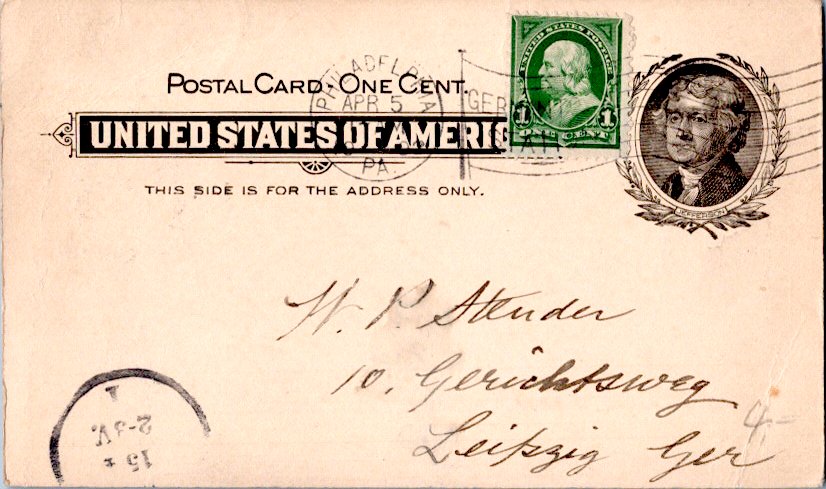 UNITED STATES POSTAGE
1 1
ONE CENT
POSTAL CARD - ONE CENT.
UNITED STATES OF AMERI
THIS SIDE IS FOR THE ADDRESS ONLY.
PHILADELPHIA
APR 5
PA.
JEFFERSON
W. P. Stender
10, Gerichtsweg
Leipzig Ger